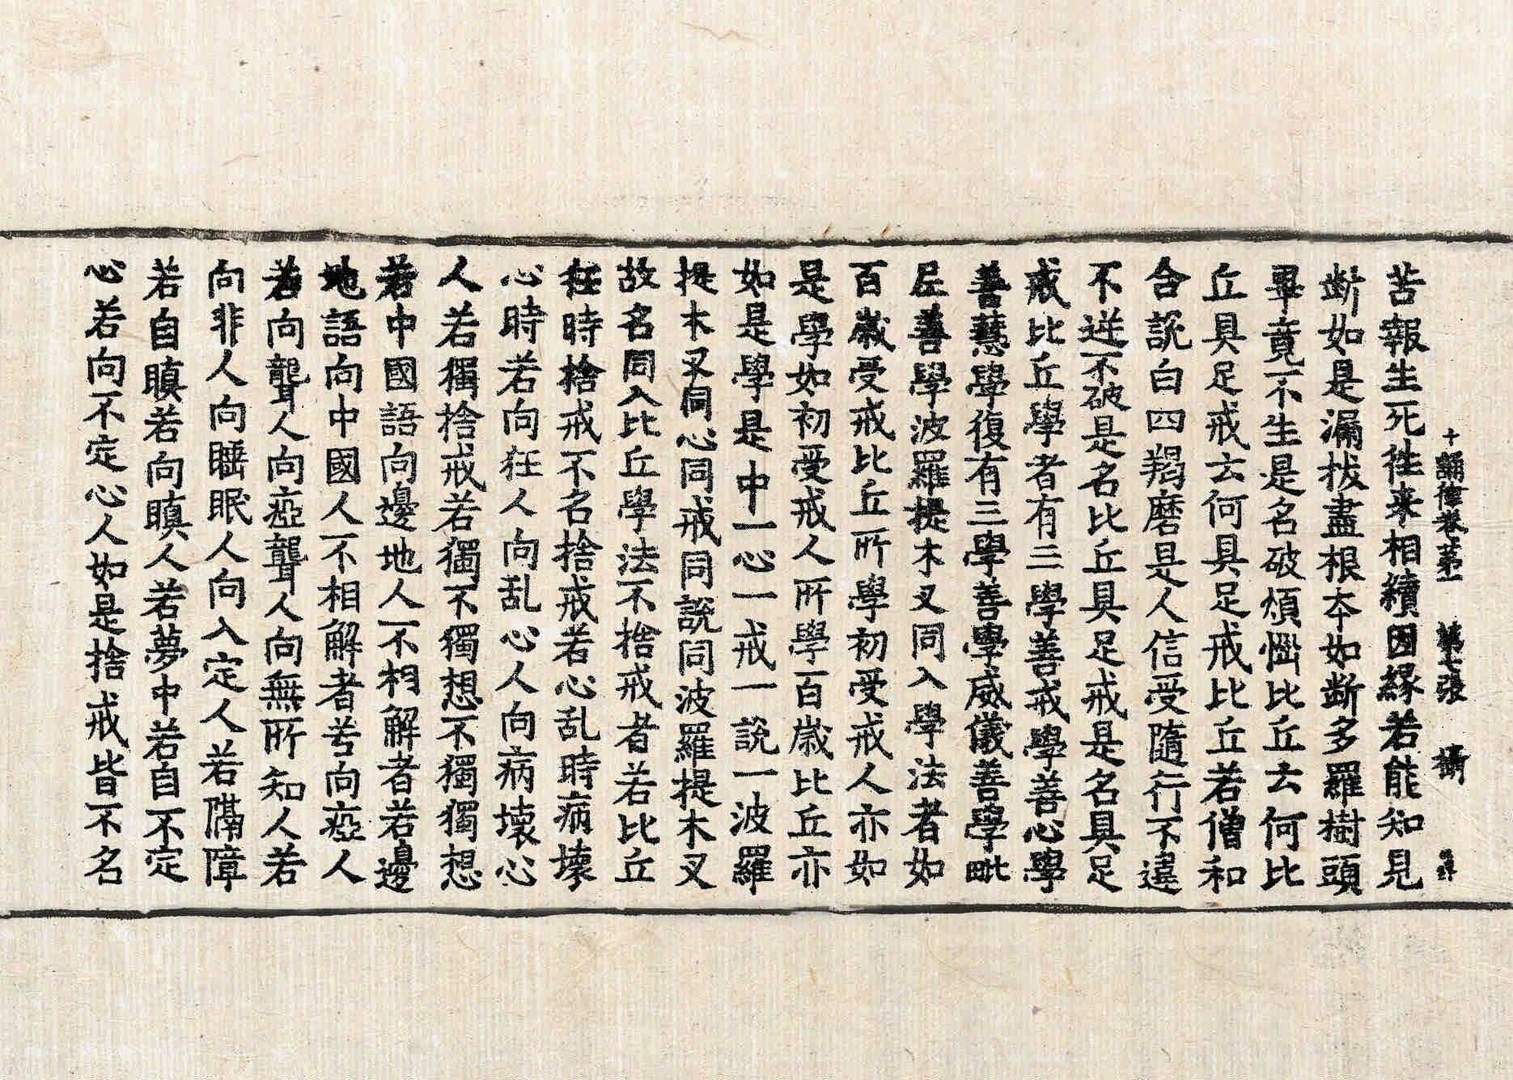 十誦律卷第一 第七張 攝
苦報生死徃来相續因縁若能知見
断如是漏拔盡根夲如断多羅樹頭
畢竟不生是名破煩惱比丘云何比
丘具足戒云何具足戒比丘若僧和
合說白四羯磨是人信受隨行不違
不逆不破是名比丘具足戒是名具足
戒比丘學者有三學善戒學善心學
善慧學復有三學善學威儀善學毗
尼善學波羅提木叉同入學法者如
百歲受戒比丘所學初受戒人亦如
是學如初受戒人所學百歲比丘亦
如是學是中一心一戒一說一波羅
提木叉同心同戒同說同波羅提木叉
故名同入比丘學法不捨戒者若比丘
狂時捨戒不名捨戒若心乱時病壞
心時若向狂人向乱心人向病壞心
人若獨捨戒若獨不獨想不獨獨想
若中國語向邊地人不相解者若邊
地語向中國人不相解者若向瘂人
若向聾人向瘂聾人向無所知人若
向非人向睡眠人向入定人若隔障
若自瞋若向瞋人若夢中若自不定
心若向不定心人如是捨戒皆不名